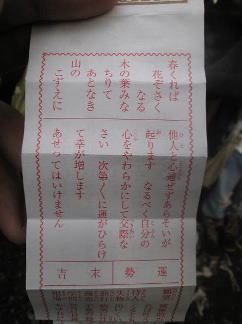 春くれば
花ぞさく
なる
木の葉みな
ちりて
あとなき
山の
こずえに
他人と心通ぜずあらそいが
起ります なるべく自分の
心をやわらかにして交際な
さい 次第〱に運がひらけ
て幸が増します
あせってはいけません
運勢
末吉